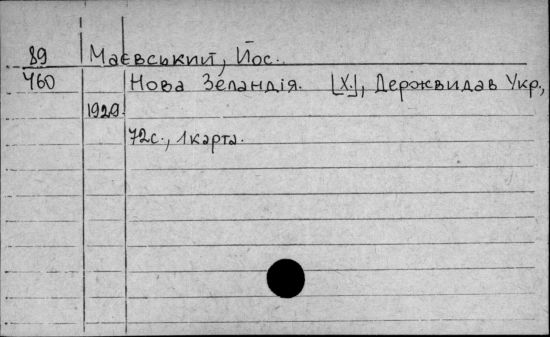 89 Маєвський, Йос.
460 Нова Зеландія. [Х.], Держвидав Укр.,
1929.
72с., 1 карта.